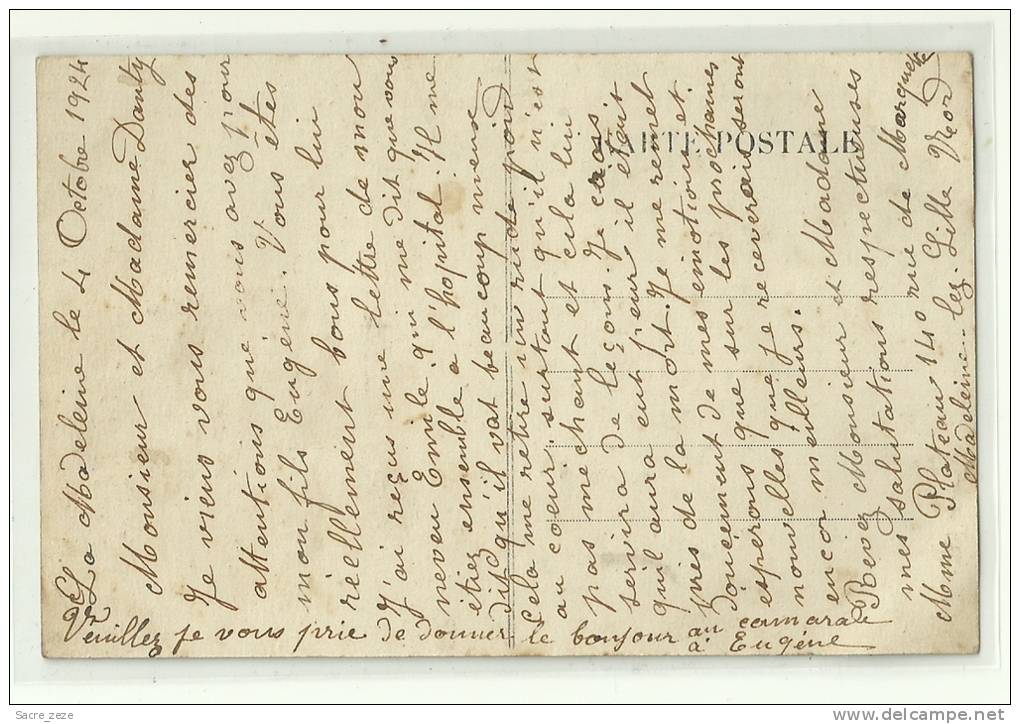 La Madeleine le 4 Octobre 1924
Monsieur et Madame Danty
Je viens vous remercier des
attentions que vous avez pour
mon fils Eugène. Vous êtes
réellement bons pour lui
J'ai reçus une lettre de nou
neveu Emile qui me dit que vous
étiez ensemble a l'hopital. Il me
dit qu'il vat beaucoup mieux
Cela me retire un rude poid
au coeur surtout qu'il n'est
pas mechant et cela lui
servira de leçons. Je crois
qu'il aura eut peur il etait
près de la mort. Je me remet
doucement de mes emotions et
esperons que sur les prochaines
nouvelles que je receverais seront
encor meilleurs.
Recevez Monsieur et Madame
mes salutations respectueuses
Mme Plateau 140 rue de Marquette
Madeleine-lez-Lille Nord
Veuillez je vous prie de donner le bonjour au camarade
à Eugéne
CARTE POSTALE
Sacre_zeze
delcampe.net